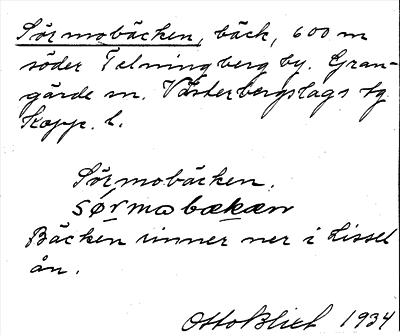 Sörmobäcken, bäck, 600 m
söder Telningberg by. Gran-
gärde sn. Västerbergslags tg
Kopp. l.
Sörmobäcken.
sørmobækæn
Bäcken rinner ner i Lissel
ån.
Otto Blixt 1934